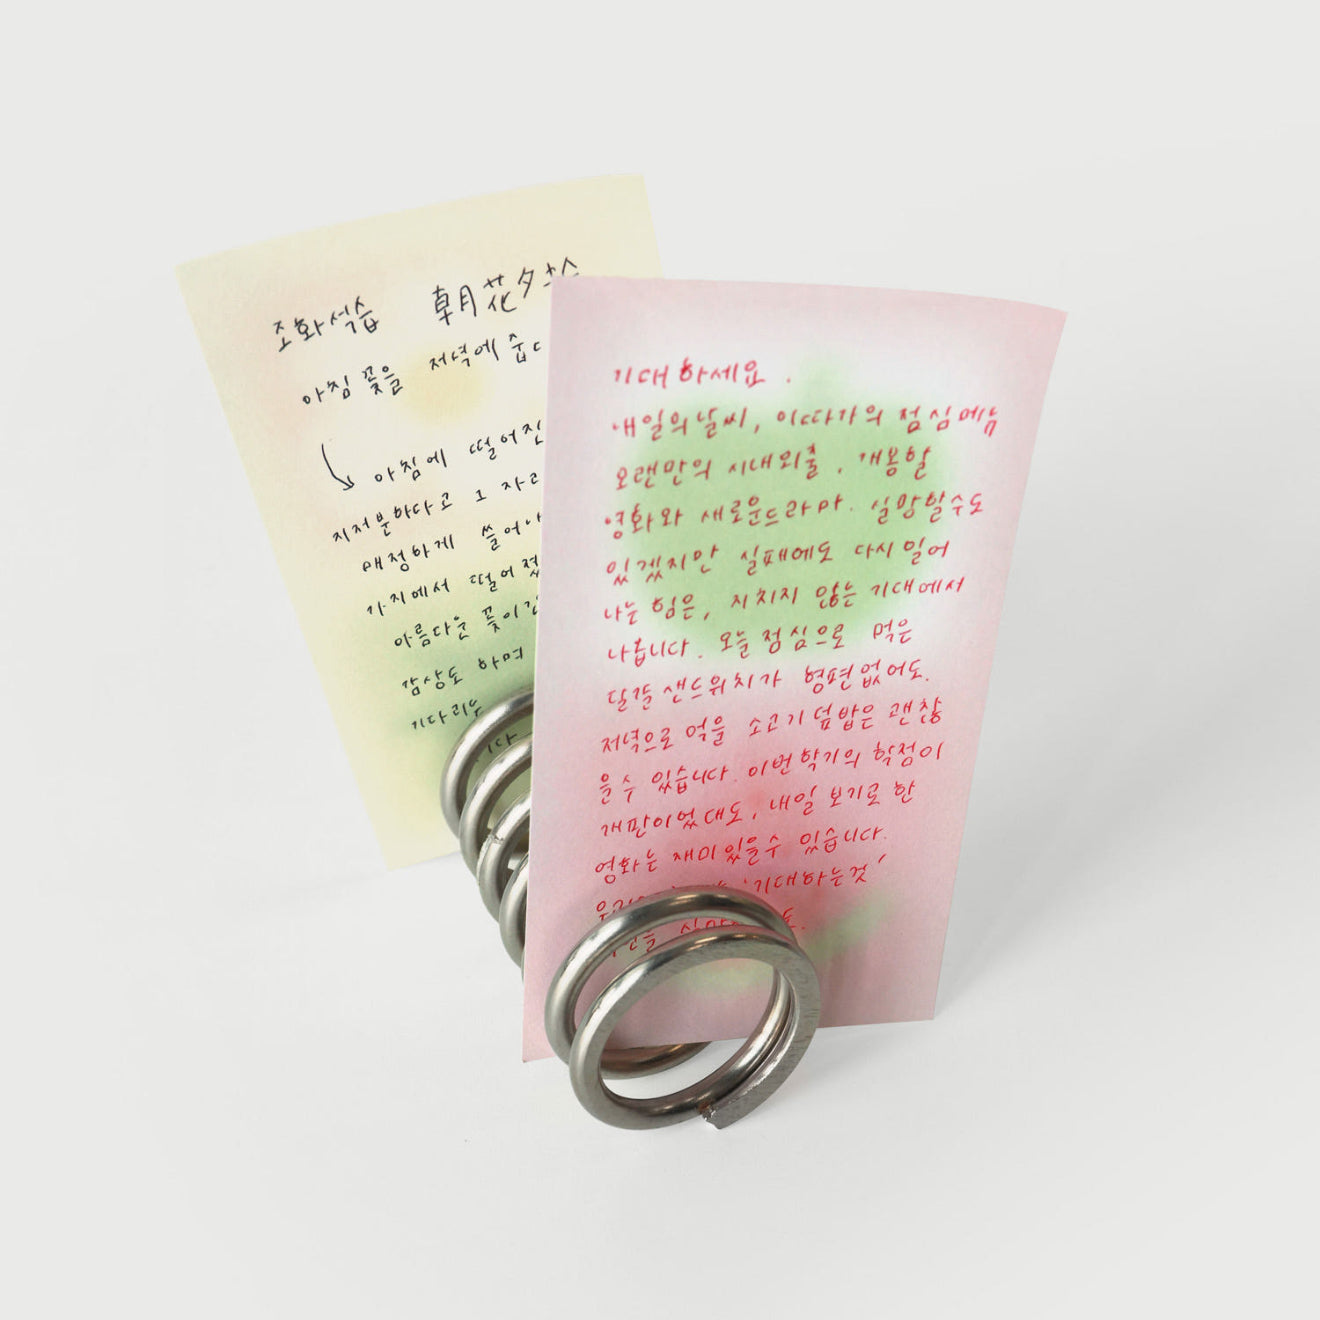 조화석습 朝花夕
아침 꽃을 저녁에
아침에 떨어진
지저분하다고 그 자리
매정하게 쓸어
가지에서 떨어졌
아름다운 꽃이
감상도 하며
기다리는
기대하세요.
내일의 날씨, 이따가의 점심메뉴
오랜만의 시내외출, 개봉할
영화와 새로운드라마. 실망할수도
있겠지만 실패에도 다시 일어
나는 힘은, 지치지 않는 기대에서
나옵니다. 오늘 점심으로 먹은
달걀 샌드위치가 형편없어도.
저녁으로 먹을 소고기 덮밥은 괜찮
을수 있습니다. 이번 학기의 학점이
개판이었대도, 내일 보기로 한
영화는 재미있을수 있습니다.
'기대하는것'